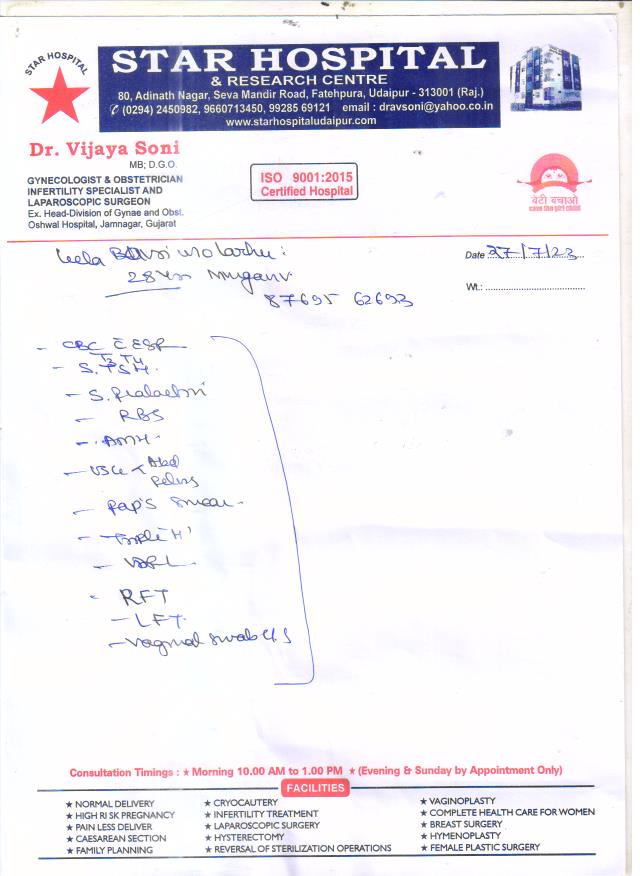 STAR HOSPITAL
STAR HOSPITAL
& RESEARCH CENTRE
80, Adinath Nagar, Seva Mandir Road, Fatehpura, Udaipur - 313001 (Raj.)
✆ (0294) 2450982, 9660713450, 99285 69121 email : dravsoni@yahoo.co.in
www.starhospitaludaipur.com
Dr. Vijaya Soni
MB; D.G.O.
GYNECOLOGIST & OBSTETRICIAN
INFERTILITY SPECIALIST AND
LAPAROSCOPIC SURGEON
Ex. Head-Division of Gynae and Obst.
Oshwal Hospital, Jamnagar, Gujarat
ISO 9001:2015
Certified Hospital
बेटी बचाओ
save the girl child
Date 27/7/23
Wt.:
Leela w/o
28 yrs
87695 62693
- CBC C̄ ESR
T3 T4
- S. TSH.
- S. Prolactin
- RBS
- AMH.
- USG < Abd
Pelvis
- Pap's Smear
- Triple 'H'
- VDRL
- RFT
- LFT
- Vaginal swab C/S
Consultation Timings : ★ Morning 10.00 AM to 1.00 PM ★ (Evening & Sunday by Appointment Only)
FACILITIES
★ NORMAL DELIVERY
★ HIGH RI SK PREGNANCY
★ PAIN LESS DELIVER
★ CAESAREAN SECTION
★ FAMILY PLANNING
★ CRYOCAUTERY
★ INFERTILITY TREATMENT
★ LAPAROSCOPIC SURGERY
★ HYSTERECTOMY
★ REVERSAL OF STERILIZATION OPERATIONS
★ VAGINOPLASTY
★ COMPLETE HEALTH CARE FOR WOMEN
★ BREAST SURGERY
★ HYMENOPLASTY
★ FEMALE PLASTIC SURGERY